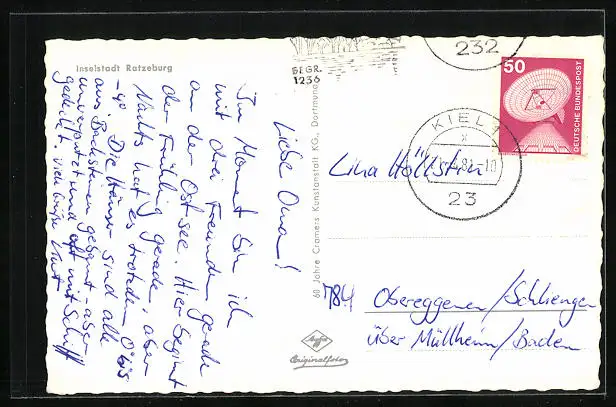 Inselstadt Ratzeburg
Liebe Oma!
Im Moment bin ich
mit drei Freunden gerade
an der Ostsee. Hier beginnt
der Frühling gerade, aber
Nachts hat es trotzdem 0° bis
Die Häuser sind alle
aus Backsteinen gebaut - aber
unverputzt und oft mit Schilf
gedeckt. Viele Grüße Knut
60 Jahre Cramers Kunstanstalt KG., Dortmund
Agfa
Originalfoto
BEGR.
1236
232
KIEL 1
x
-10
23
50
DEUTSCHE BUNDESPOST
Lina Höllstin
784 Obereggenen/Schliengen
über Müllheim/Baden